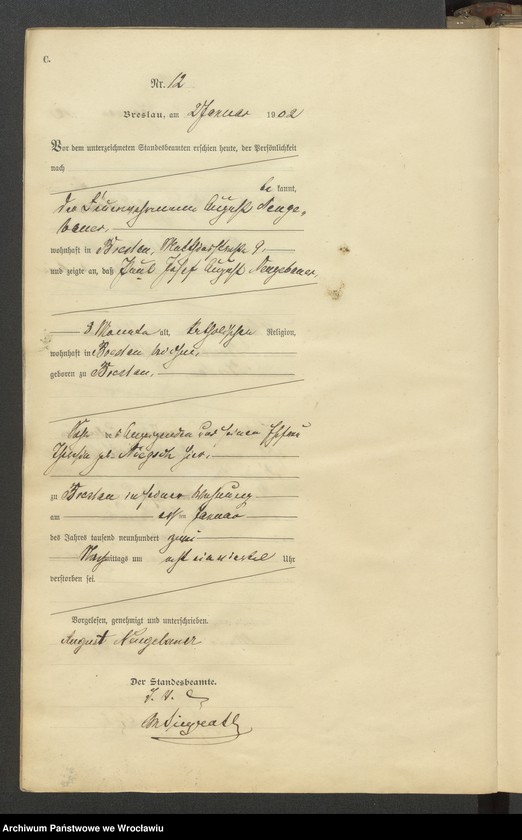 C.
Nr. 12
Breslau, am 2 Januar 1902
Vor dem unterzeichneten Standesbeamten erschien heute, der Persönlichkeit
nach
be kannt,
der Feuerwehrmann August Neuge-
bauer,
wohnhaft in Breslau, 9,
und zeigte an, daß Paul Josef August Neugebauer,
3 Monate alt, katholischer Religion,
wohnhaft in Breslau bei ihm,
geboren zu Breslau,
Sohn des Anzeigenden und seiner Ehefrau
geb.
zu Breslau in seiner Wohnung
am ersten Januar
des Jahres tausend neunhundert zwei
Nachmittags um acht ein viertel Uhr
verstorben sei.
Vorgelesen, genehmigt und unterschrieben.
August Neugebauer
Der Standesbeamte.
J. V.
Archiwum Państwowe we Wrocławiu